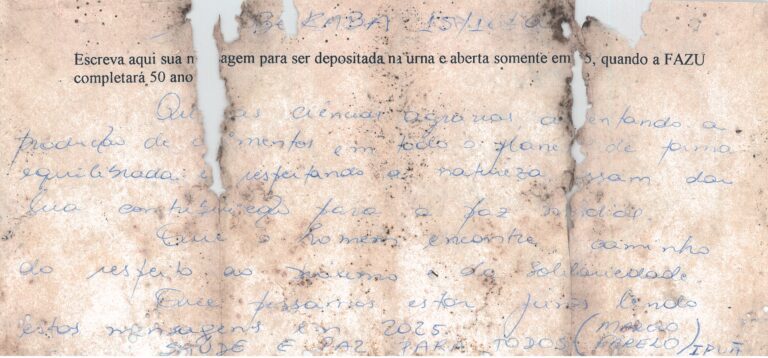 UBERABA 15/10/0
Escreva aqui sua m sagem para ser depositada na urna e aberta somente em 5, quando a FAZU
completará 50 ano
Que as ciências agrárias a entando a
produção de a mentos em todo o plane de forma
equilibrada e respeitando a natureza ssam dar
sua contribuição para a paz mundial.
Que o homem encontre caminho
do respeito ao próximo e da solidariedade.
Que possamos estar juntos lendo
estas mensagens em 2025.
SAÚDE E PAZ PARA TODOS (MARCIO